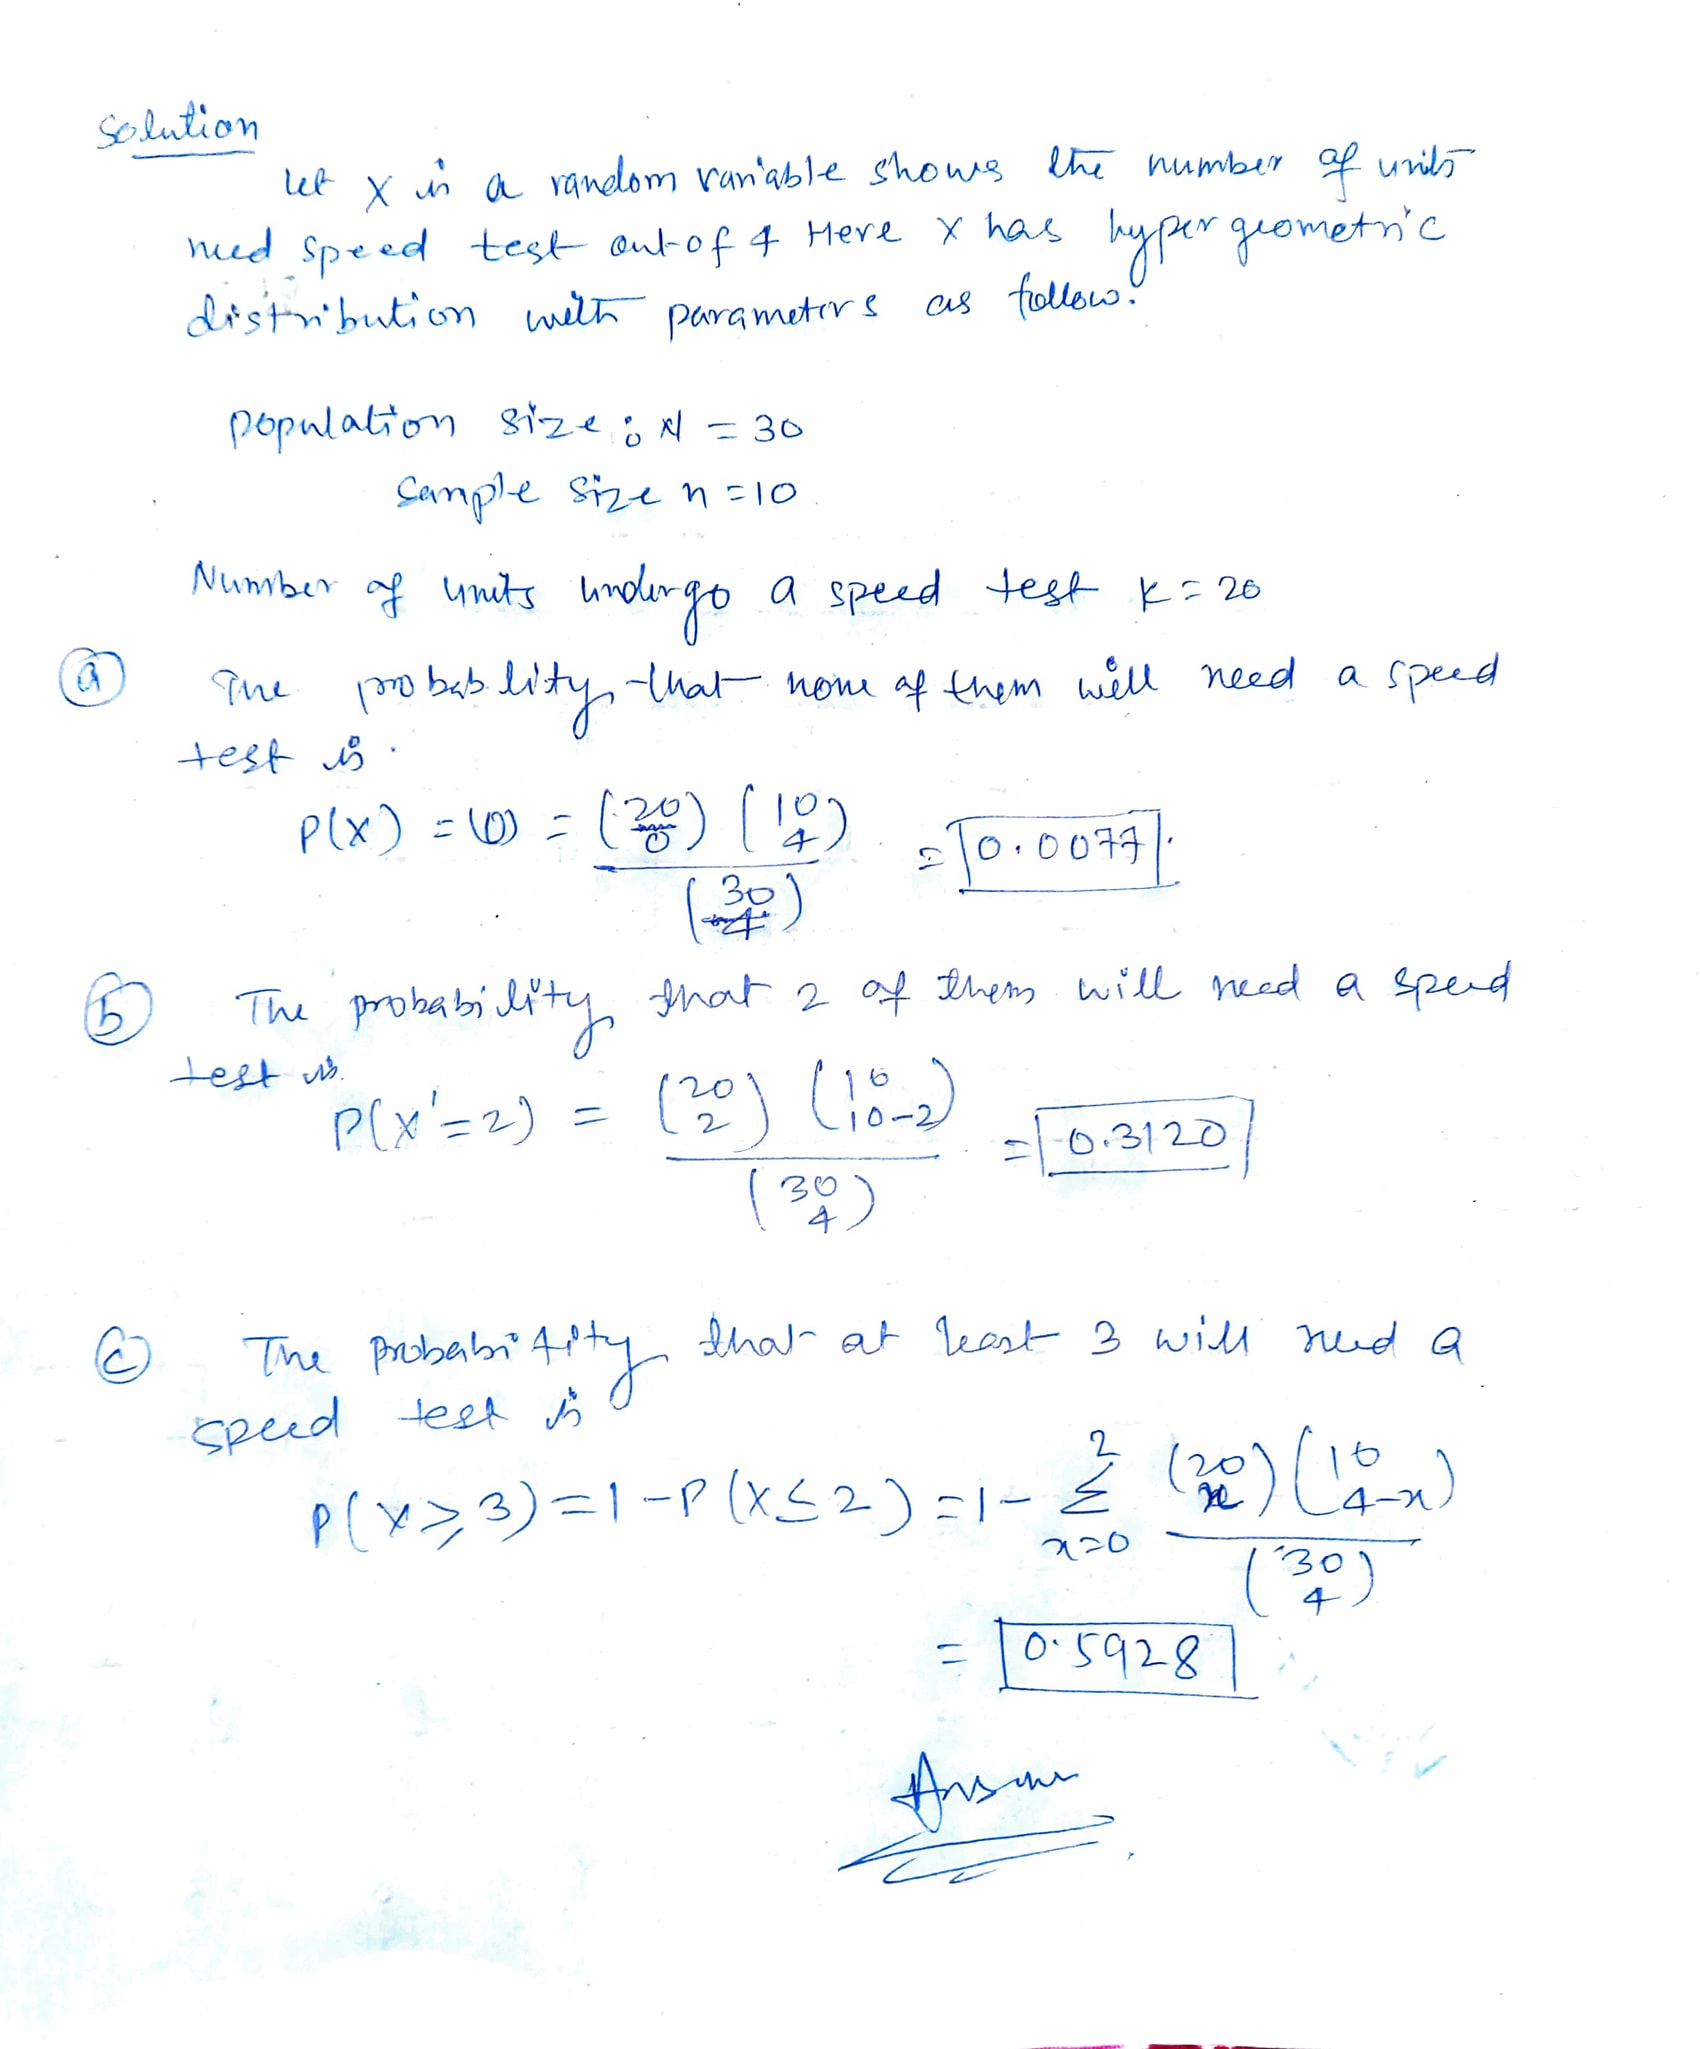 Solution
Let X is a random variable shows the number of units
need speed test out of 4 Here X has hypergeometric
distribution with parameters as follow:
population size : N = 30
Sample size n = 10
Number of units undergo a speed test K = 20
(a) The probablity that none of them will need a speed
test is.
P(X) = (0) = (20 0) (10 4) / (30 4) = 0.0077.
(b) The probability that 2 of them will need a speed
test is.
P(X = 2) = (20 2) (10 10-2) / (30 4) = 0.3120
(c) The probability that at least 3 will need a
speed test is
P(X ≥ 3) = 1 - P(X ≤ 2) = 1 - 2 Σ x=0 (20 x) (10 4-x) / (30 4)
= 0.5928
Answer